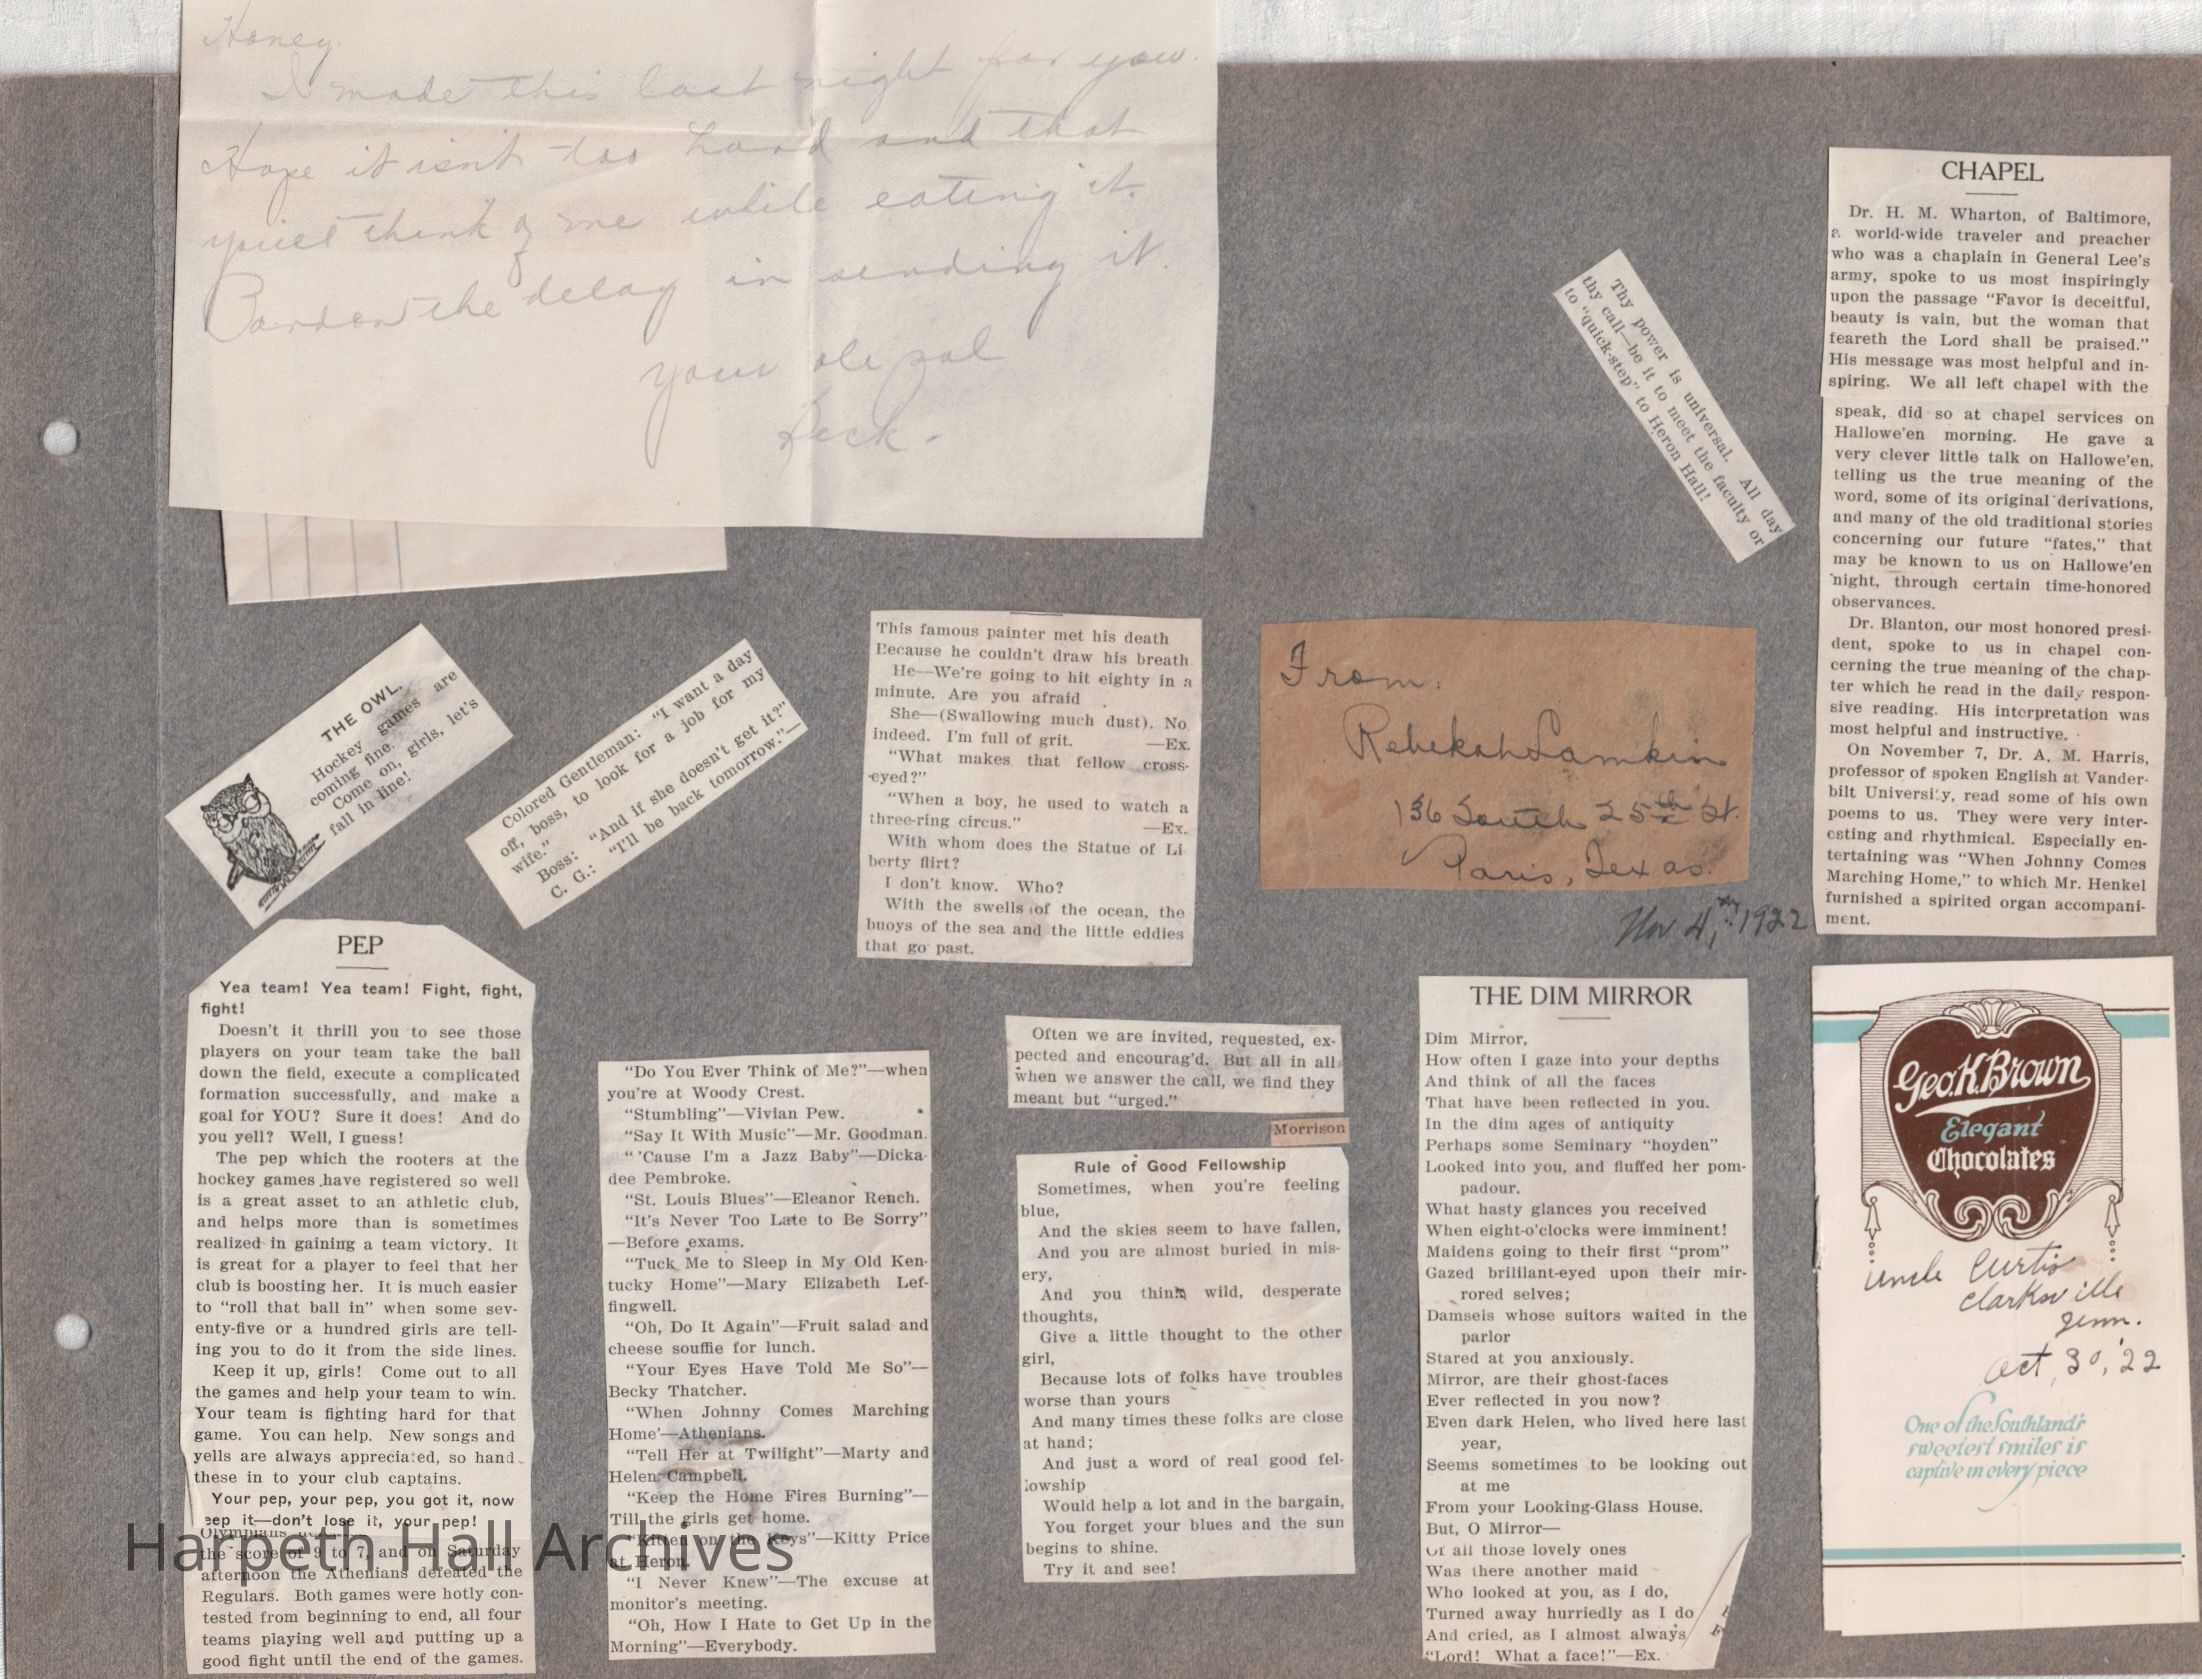 Honey,
I made this last night for you.
Hope it isn't too hard and that
you'll think of me while eating it.
Pardon the delay in sending it.
your ole pal
Beck-
Thy power is universal. All day
thy call—be it to meet the faculty or
to "quick-step" to Heron Hall!
CHAPEL
Dr. H. M. Wharton, of Baltimore,
a world-wide traveler and preacher
who was a chaplain in General Lee's
army, spoke to us most inspiringly
upon the passage "Favor is deceitful,
beauty is vain, but the woman that
feareth the Lord shall be praised."
His message was most helpful and in-
spiring. We all left chapel with the
speak, did so at chapel services on
Hallowe'en morning. He gave a
very clever little talk on Hallowe'en,
telling us the true meaning of the
word, some of its original derivations,
and many of the old traditional stories
concerning our future "fates," that
may be known to us on Hallowe'en
night, through certain time-honored
observances.
Dr. Blanton, our most honored presi-
dent, spoke to us in chapel con-
cerning the true meaning of the chap-
ter which he read in the daily respon-
sive reading. His interpretation was
most helpful and instructive.
On November 7, Dr. A. M. Harris,
professor of spoken English at Vander-
bilt University, read some of his own
poems to us. They were very inter-
esting and rhythmical. Especially en-
tertaining was "When Johnny Comes
Marching Home," to which Mr. Henkel
furnished a spirited organ accompani-
ment.
THE OWL.
Hockey games are
coming fine.
Come on, girls, let's
fall in line!
Colored Gentleman: "I want a day
off, boss, to look for a job for my
wife."
Boss: "And if she doesn't get it?"
C. G.: "I'll be back tomorrow."—
This famous painter met his death
Because he couldn't draw his breath
He—We're going to hit eighty in a
minute. Are you afraid
She—(Swallowing much dust). No
indeed. I'm full of grit. —Ex.
"What makes that fellow cross-
eyed?"
"When a boy, he used to watch a
three-ring circus." —Ex.
With whom does the Statue of Li
berty flirt?
I don't know. Who?
With the swells of the ocean, the
buoys of the sea and the little eddies
that go past.
From.
Rebekah Lamkin
136 South 25th St.
Paris, Texas.
Nov 4, 1922
PEP
Yea team! Yea team! Fight, fight,
fight!
Doesn't it thrill you to see those
players on your team take the ball
down the field, execute a complicated
formation successfully, and make a
goal for YOU? Sure it does! And do
you yell? Well, I guess!
The pep which the rooters at the
hockey games have registered so well
is a great asset to an athletic club,
and helps more than is sometimes
realized in gaining a team victory. It
is great for a player to feel that her
club is boosting her. It is much easier
to "roll that ball in" when some sev-
enty-five or a hundred girls are tell-
ing you to do it from the side lines.
Keep it up, girls! Come out to all
the games and help your team to win.
Your team is fighting hard for that
game. You can help. New songs and
yells are always appreciated, so hand
these in to your club captains.
Your pep, your pep, you got it, now
eep it—don't lose it, your pep!
Olympians
the score of 9 to 7, and on Saturday
afternoon the Athenians defeated the
Regulars. Both games were hotly con-
tested from beginning to end, all four
teams playing well and putting up a
good fight until the end of the games.
"Do You Ever Think of Me?"—when
you're at Woody Crest.
"Stumbling"—Vivian Pew.
"Say It With Music"—Mr. Goodman.
"'Cause I'm a Jazz Baby"—Dicka-
dee Pembroke.
"St. Louis Blues"—Eleanor Rench.
"It's Never Too Late to Be Sorry"
—Before exams.
"Tuck Me to Sleep in My Old Ken-
tucky Home"—Mary Elizabeth Lef-
fingwell.
"Oh, Do It Again"—Fruit salad and
cheese souffie for lunch.
"Your Eyes Have Told Me So"—
Becky Thatcher.
"When Johnny Comes Marching
Home'—Athenians.
"Tell Her at Twilight"—Marty and
Helen Campbell.
"Keep the Home Fires Burning"—
Till the girls get home.
"Kitten on the Keys"—Kitty Price
at Heron.
"I Never Knew"—The excuse at
monitor's meeting.
"Oh, How I Hate to Get Up in the
Morning"—Everybody.
Often we are invited, requested, ex-
pected and encourag'd. But all in all
when we answer the call, we find they
meant but "urged."
Morrison
Rule of Good Fellowship
Sometimes, when you're feeling
blue,
And the skies seem to have fallen,
And you are almost buried in mis-
ery,
And you think wild, desperate
thoughts,
Give a little thought to the other
girl,
Because lots of folks have troubles
worse than yours
And many times these folks are close
at hand;
And just a word of real good fel-
lowship
Would help a lot and in the bargain,
You forget your blues and the sun
begins to shine.
Try it and see!
THE DIM MIRROR
Dim Mirror,
How often I gaze into your depths
And think of all the faces
That have been reflected in you.
In the dim ages of antiquity
Perhaps some Seminary "hoyden"
Looked into you, and fluffed her pom-
padour.
What hasty glances you received
When eight-o'clocks were imminent!
Maidens going to their first "prom"
Gazed brililant-eyed upon their mir-
rored selves;
Damsels whose suitors waited in the
parlor
Stared at you anxiously.
Mirror, are their ghost-faces
Ever reflected in you now?
Even dark Helen, who lived here last
year,
Seems sometimes to be looking out
at me
From your Looking-Glass House.
But, O Mirror—
Of all those lovely ones
Was there another maid
Who looked at you, as I do,
Turned away hurriedly as I do
And cried, as I almost always
"Lord! What a face!"—Ex.
Geo. K. Brown
Elegant
Chocolates
Uncle Curtis
Clarksville
Tenn.
Oct, 30, '22
One of the Southland's
sweetest smiles is
captive in every piece
Harpeth Hall Archives